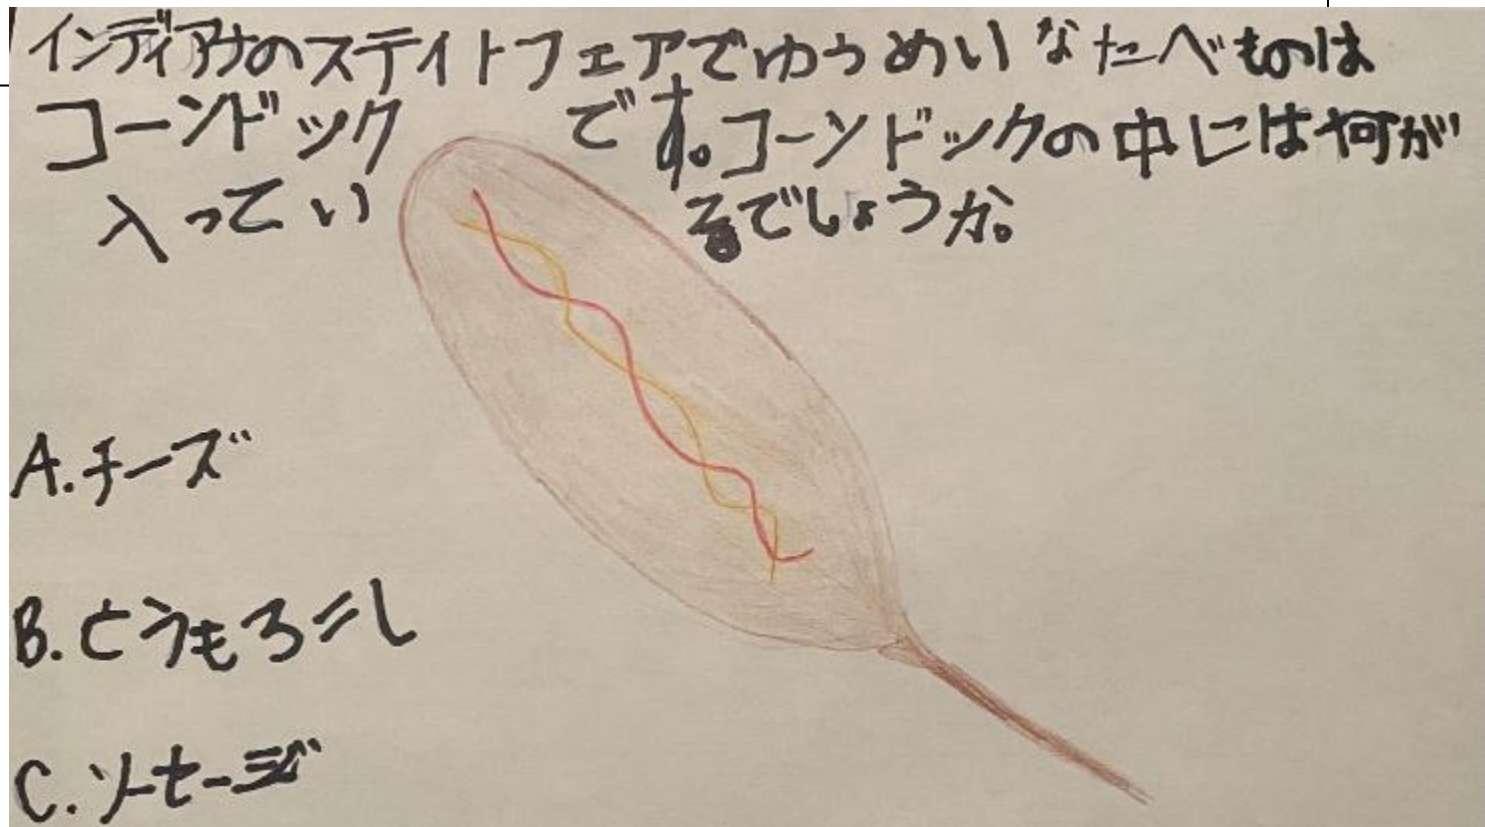 インディアナのステイトフェアでゆうめいなたべものは
コーンドックです。コーンドックの中には何が
入っているでしょうか。
A.チーズ
B.とうもろこし
C.ソーセージ